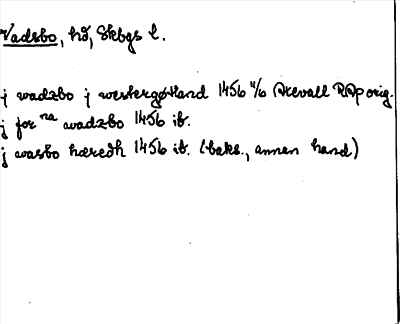 Vadsbo, hd, Skbgs l.
j wadzbo j westergøtland 1456 4/6 Arevall RAp orig.
j for na wadzbo 1456 ib.
j wasbo hæredh 1456 ib. (baks., annen hand)